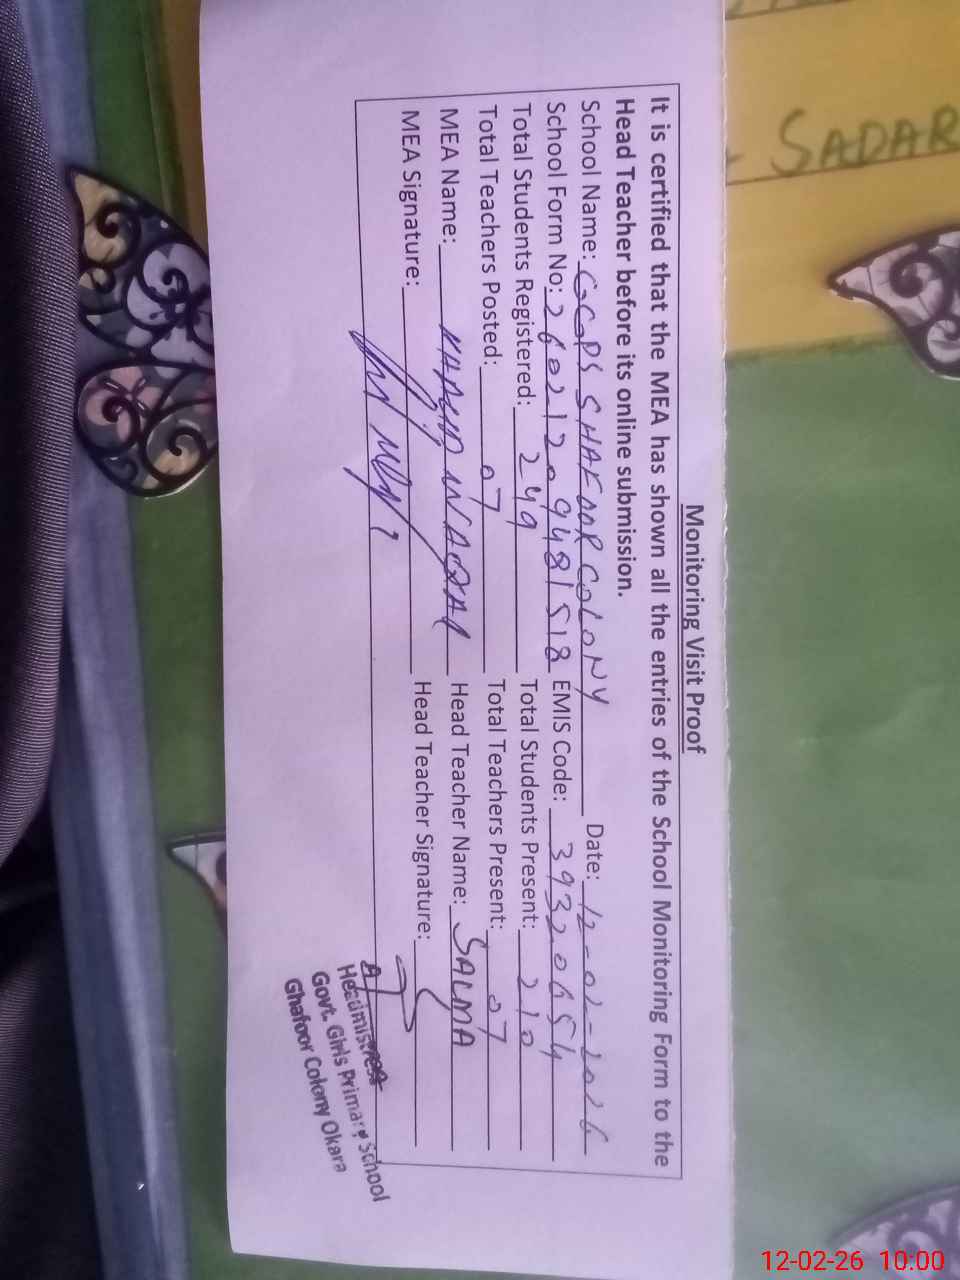 Monitoring Visit Proof
It is certified that the MEA has shown all the entries of the School Monitoring Form to the
Head Teacher before its online submission.
School Name: GGPS COLONY Date: 12-02-2026
School Form No: 26021209481518 EMIS Code: 39320654
Total Students Registered: 249 Total Students Present: 210
Total Teachers Posted: 07 Total Teachers Present: 07
MEA Name: Head Teacher Name: SALMA
MEA Signature: Head Teacher Signature:
Headmistress
Govt. Girls Primary School
Ghafoor Colony Okara
SADAR
12-02-26 10:00